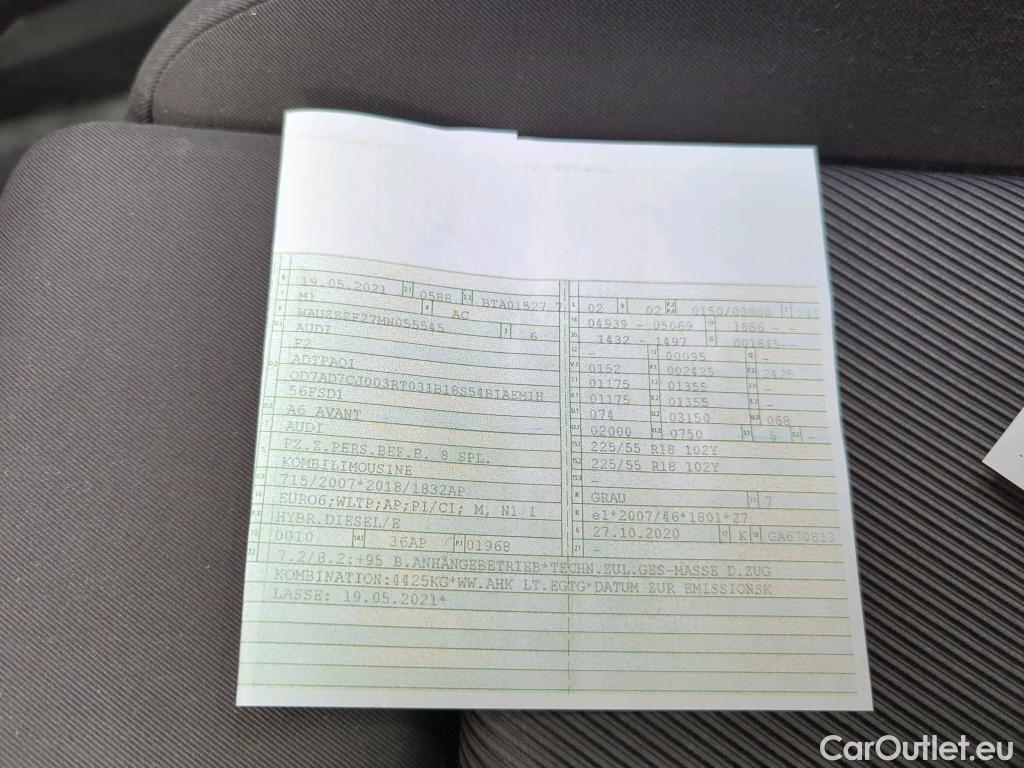 19.05.2021 2.1 0588 2.2 BTA01527 7
M1 AC
WAUZZZF27MN055545 3 6
AUDI
F2
ADTPAQ1
QD7AD7CJ003RT031B18S54BIAEM1H
56FSD1
A6 AVANT
AUDI
PZ.Z.PERS.BEF.B. 8 SPL.
KOMBILIMOUSINE
715/2007*2018/1832AP
EURO6;WLTP;AP;PI/CI; M, N1 I
HYBR.DIESEL/E
0010 14.1 36AP P.1 01968
02 9 02 0150/03800
04939 - 05069 19 1886 - -
1432 - 1497 G 001845--
- 13 00095 Q -
0152 F.1 002425 F.2 2425
01175 01355 -
01175 01355 -
074 U.2 03150 U.3 068
02000 O.2 0750 S.1 5 S.2 -
15.1 225/55 R18 102Y
15.2 225/55 R18 102Y
15.3 -
R GRAU 11 7
K e1*2007/46*1801*27
6 27.10.2020 17 K 16 GA670813
21 -
22 7.2/8.2:+95 B.ANHÄNGEBETRIEB*TECHN.ZUL.GES-MASSE D.ZUG
KOMBINATION:4425KG*WW.AHK LT.EGTG*DATUM ZUR EMISSIONSK
LASSE: 19.05.2021*
CarOutlet.eu